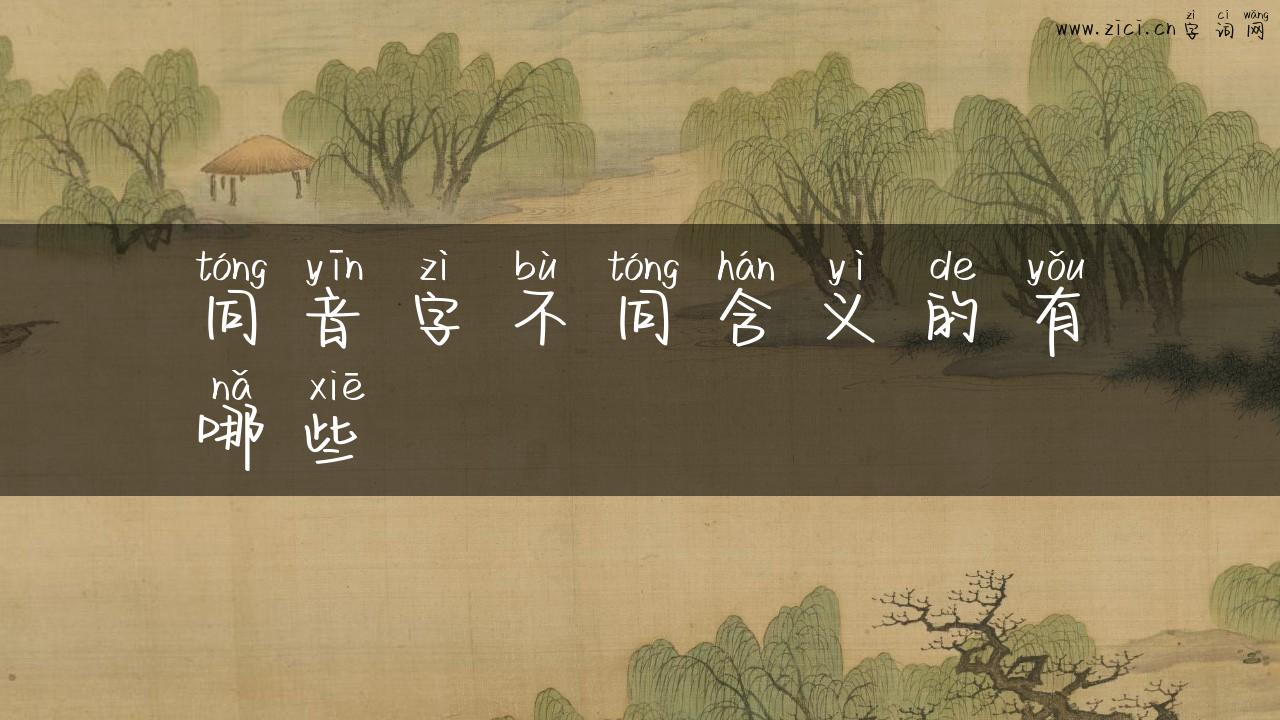 zì cí wǎng
www.zici.cn 字 词 网
tóng yīn zì bù tóng hán yì de yǒu
同 音 字 不 同 含 义 的 有
nǎ xiē
哪 些